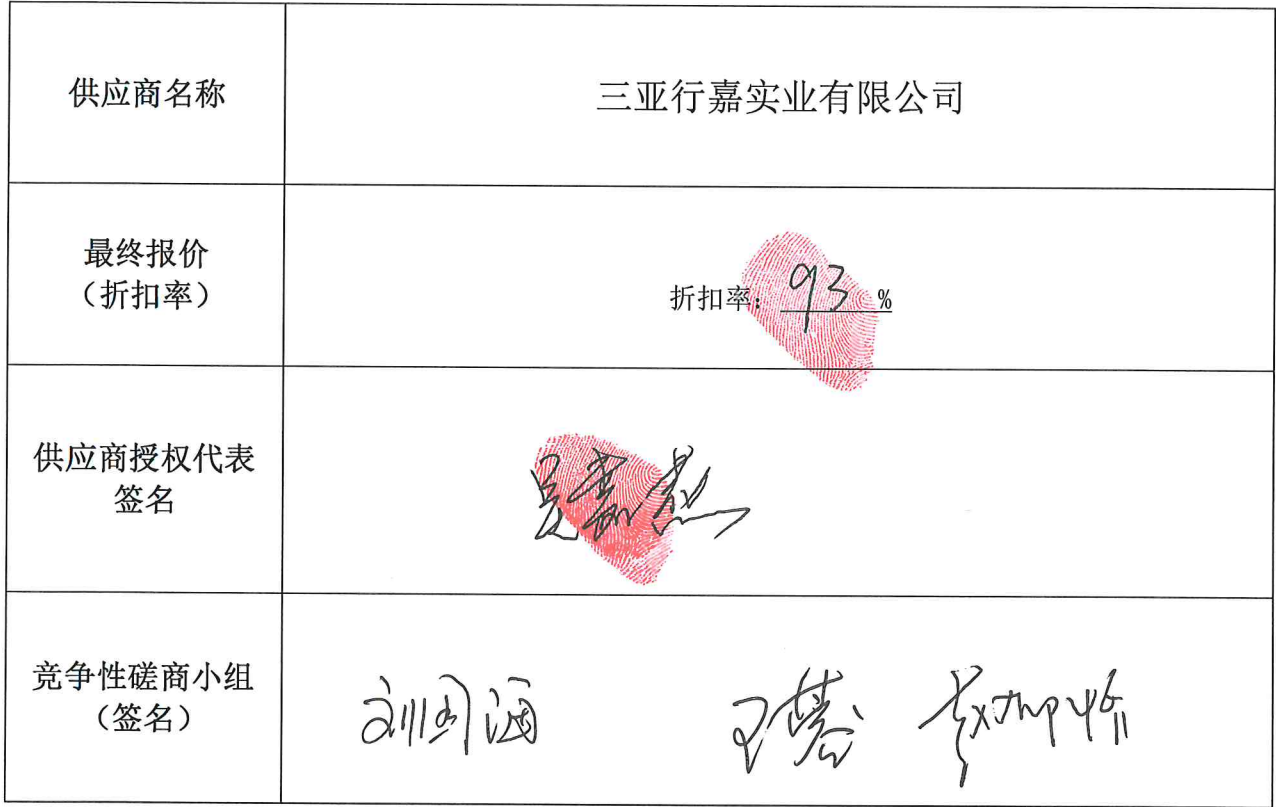 供应商名称
三亚行嘉实业有限公司
最终报价
（折扣率）
折扣率：93 %
供应商授权代表
签名
竞争性磋商小组
（签名）